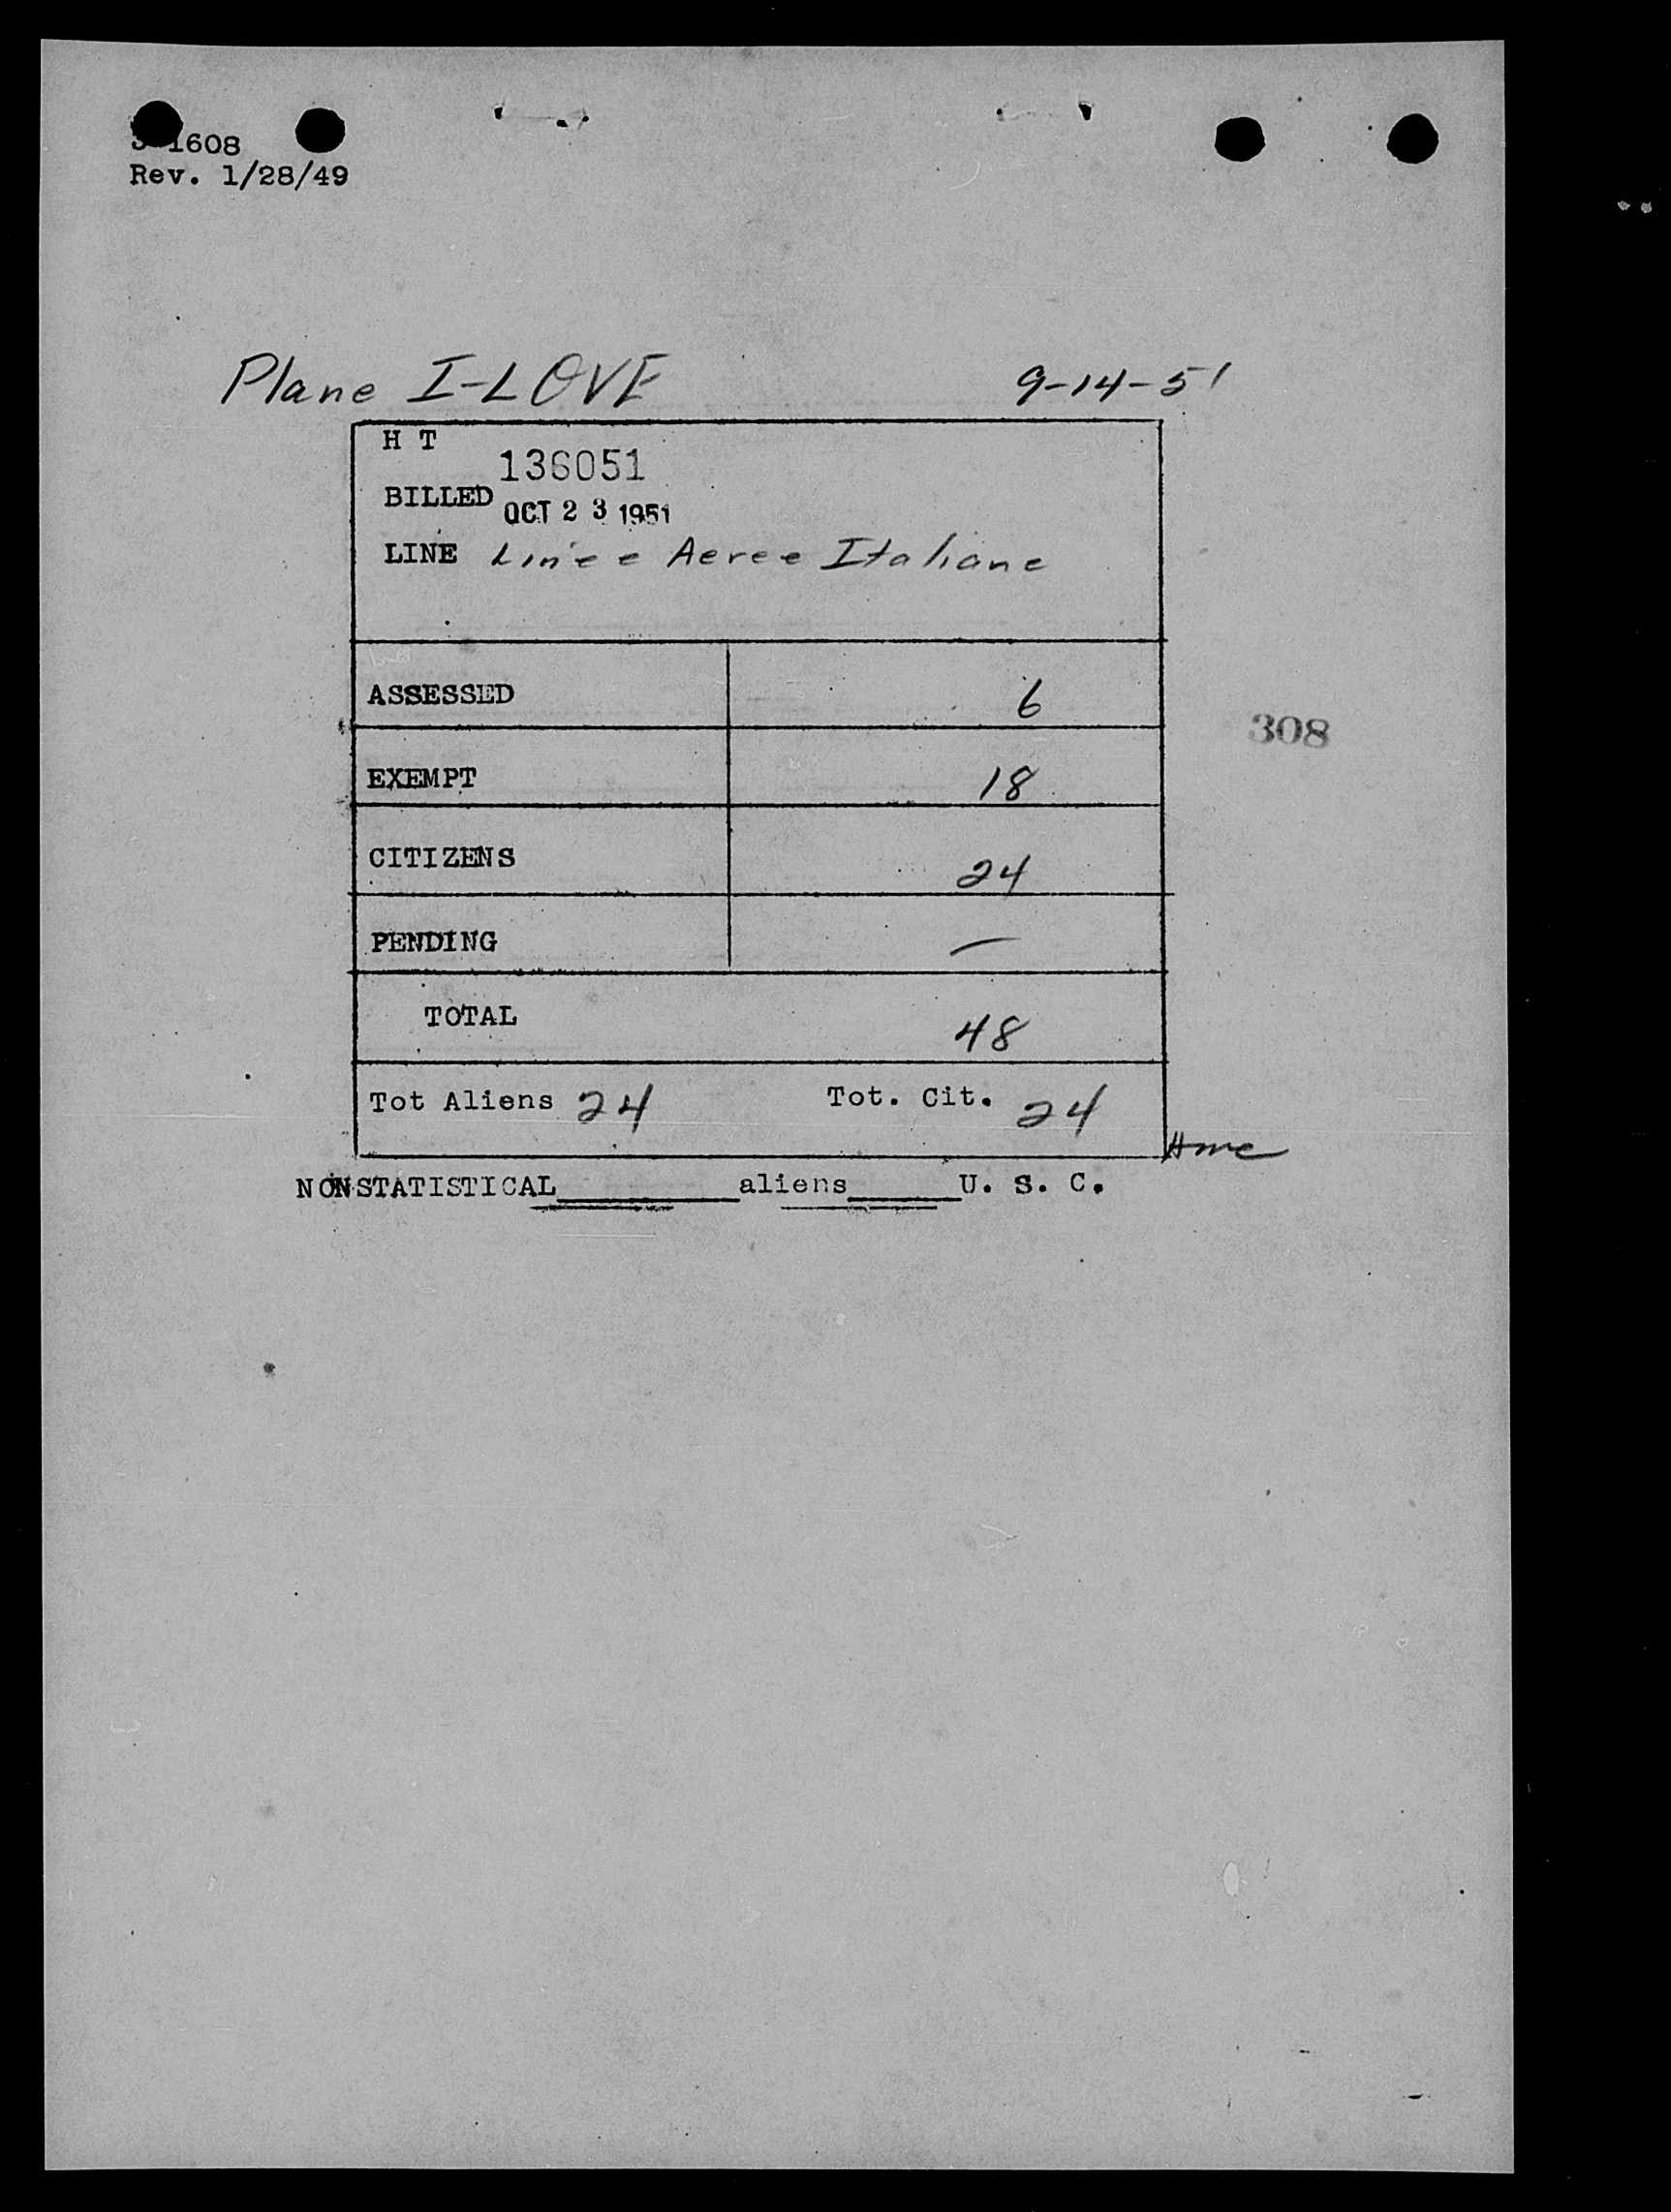 1608
Rev. 1/28/49
Plane I-LOVE 9-14-51
H T
136051
BILLED
OCT 23 1951
LINE Linee Aeree Italiane
ASSESSED 6
308
EXEMPT 18
CITIZENS 24
PENDING —
TOTAL 48
Tot Aliens 24 Tot. Cit. 24
NONSTATISTICAL__________aliens______U. S. C.